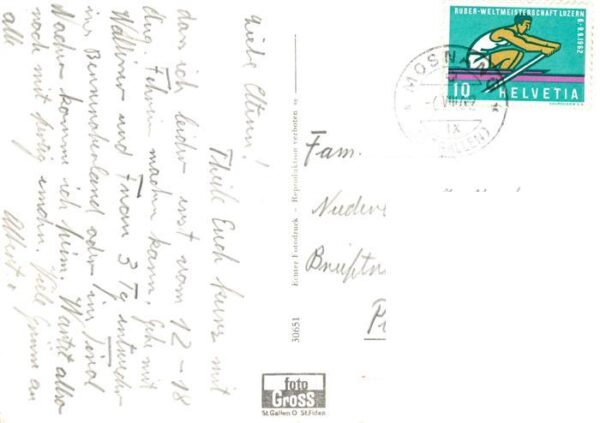 Liebe Eltern!
Theile Euch kurz mit
dass ich leider erst vom 12–18
Aug. Ferien machen kann. Gehe mit
Walliser und Fnom 3 Tg. entweder
ins Berneroberland oder ins Tirol
Nachher komme ich heim. Wartet also
noch mit emden. Viele Grüsse an
alle Albert.
30651 Echter Fotodruck - Reproduktion verboten
foto
GROSS
St. Gallen O St. Fiden
RUDER-WELTMEISTERSCHAFT LUZERN
6.-9.9.1962
10 HELVETIA
MOSNANG
(ST. GALLEN)
Fam.